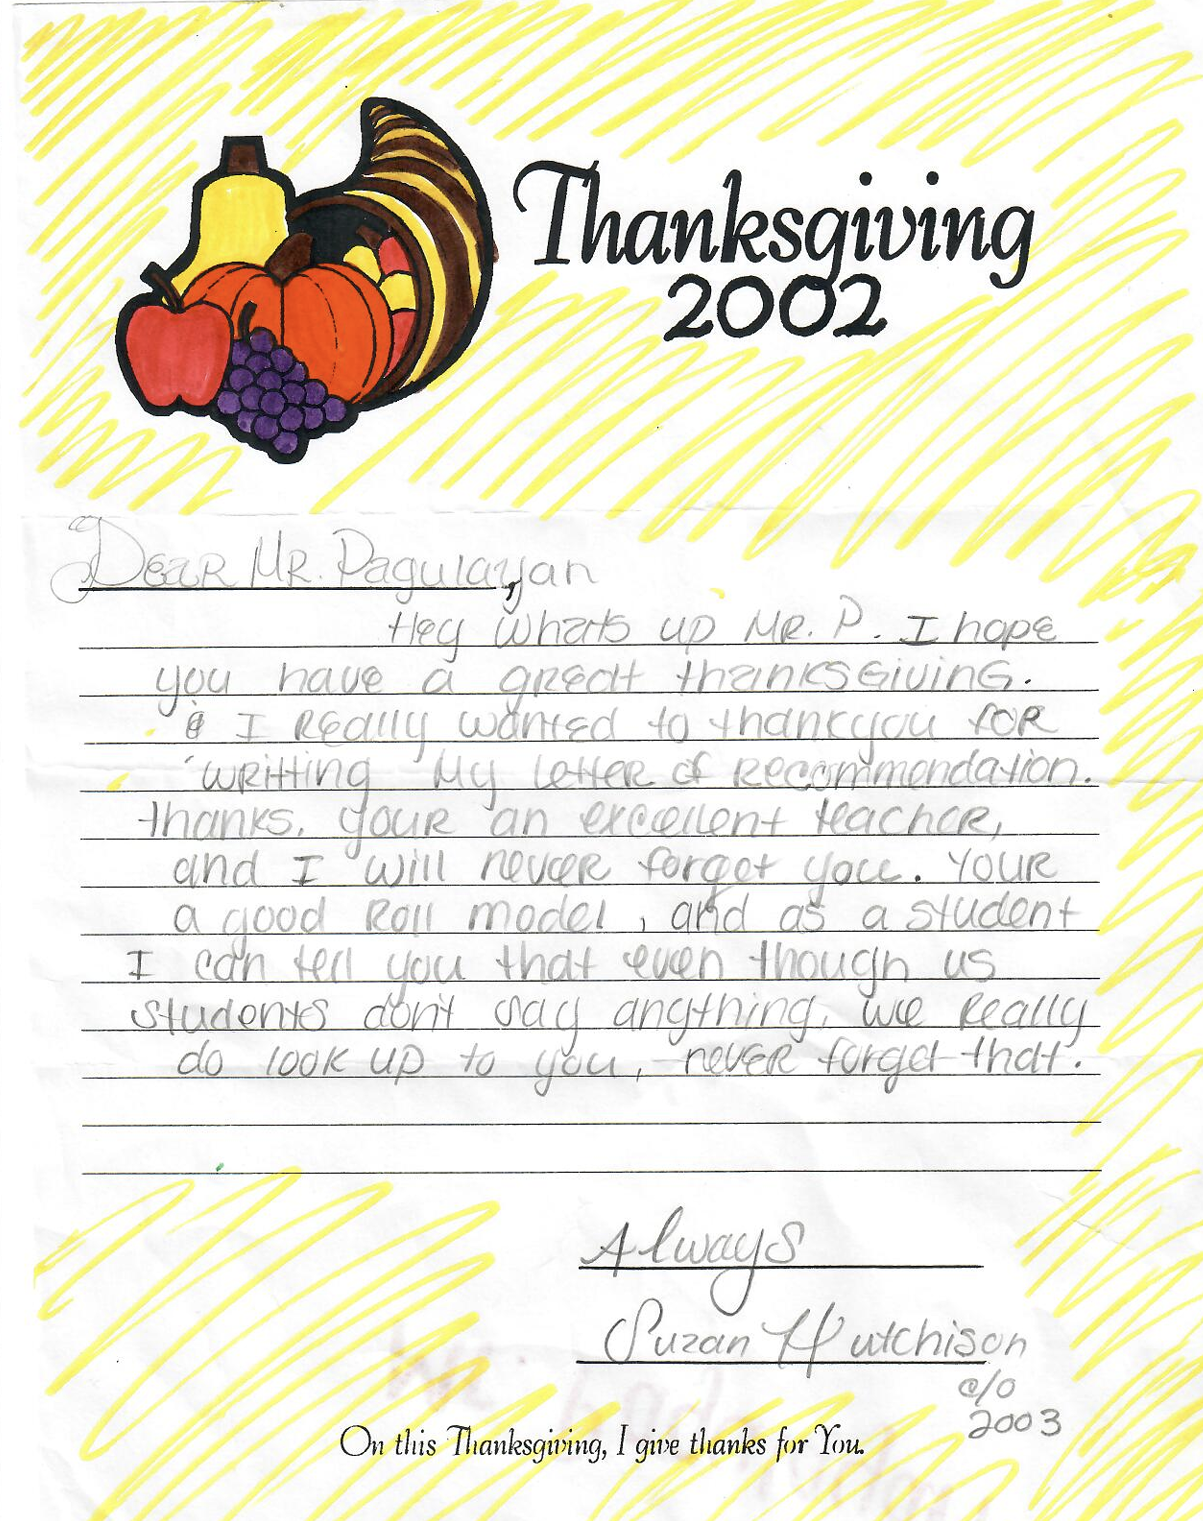 Thanksgiving
2002
Dear Mr. Pagulayan
,
Hey whats up Mr. P. I hope
you have a great thanksgiving.
I really wanted to thankyou for
writting My letter of recommendation.
thanks, your an excellent teacher,
and I will never forget you. Your
a good Roll model, and as a student
I can tell you that even though us
students don't say anything, we really
do look up to you, never forget that.
Always
Suzan Hutchison
c/o
2003
On this Thanksgiving, I give thanks for You.